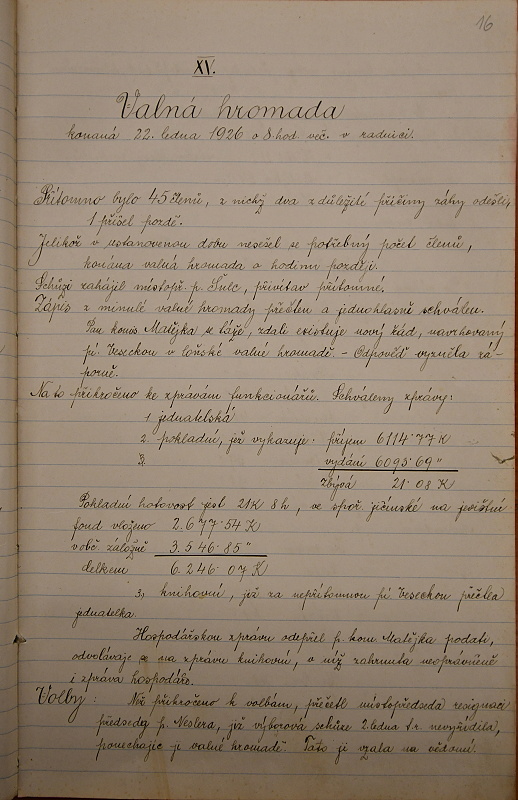 16
XV.
Valná hromada
konaná 22. ledna 1926 o 8 hod. več. v radnici.
Přítomno bylo 45 členů, z nichž dva z důležité příčiny záhy odešli,
1 přišel pozdě.
Jelikož v ustanovenou dobu nesešel se potřebný počet členů,
konána valná hromada o hodinu později.
Schůzi zahájil místopř. p. Šulc, přivítav přítomné.
Zápis z minulé valné hromady přečten a jednohlasně schválen.
Pan komis Matějka se táže, zdali existuje nový řád, navrhovaný
pí. Veseckou v loňské valné hromadě. – Odpověď vyzněla zá-
porně.
Na to přikročeno ke zprávám funkcionářů. Schváleny zprávy:
1. jednatelská
2. pokladní, jež vykazuje: příjem 6114·77 K
3. vydání 6093·69 "
zbývá 21·08 K
Pokladní hotovost jest 21 K 8 h, ve spoř. jičínské na jevištní
fond vloženo 2.677·54 K
v obč. záložně 3.546·85 "
celkem 6.246·07 K
3, knihovní, již za nepřítomnou pí Veseckou přečtla
jednatelka.
Hospodářskou zprávu odepřel p. kom. Matějka podati,
odvolávaje se na zprávu knihovní, v níž zahrnuta neoprávněně
i zpráva hospodářs.
Volby: Než přikročeno k volbám, přečetl místopředseda resignaci
předsedy p. Neslera, již výborová schůze 2. ledna t.r. nevyřídila,
ponechajíc ji valné hromadě. Tato ji vzala na vědomí.